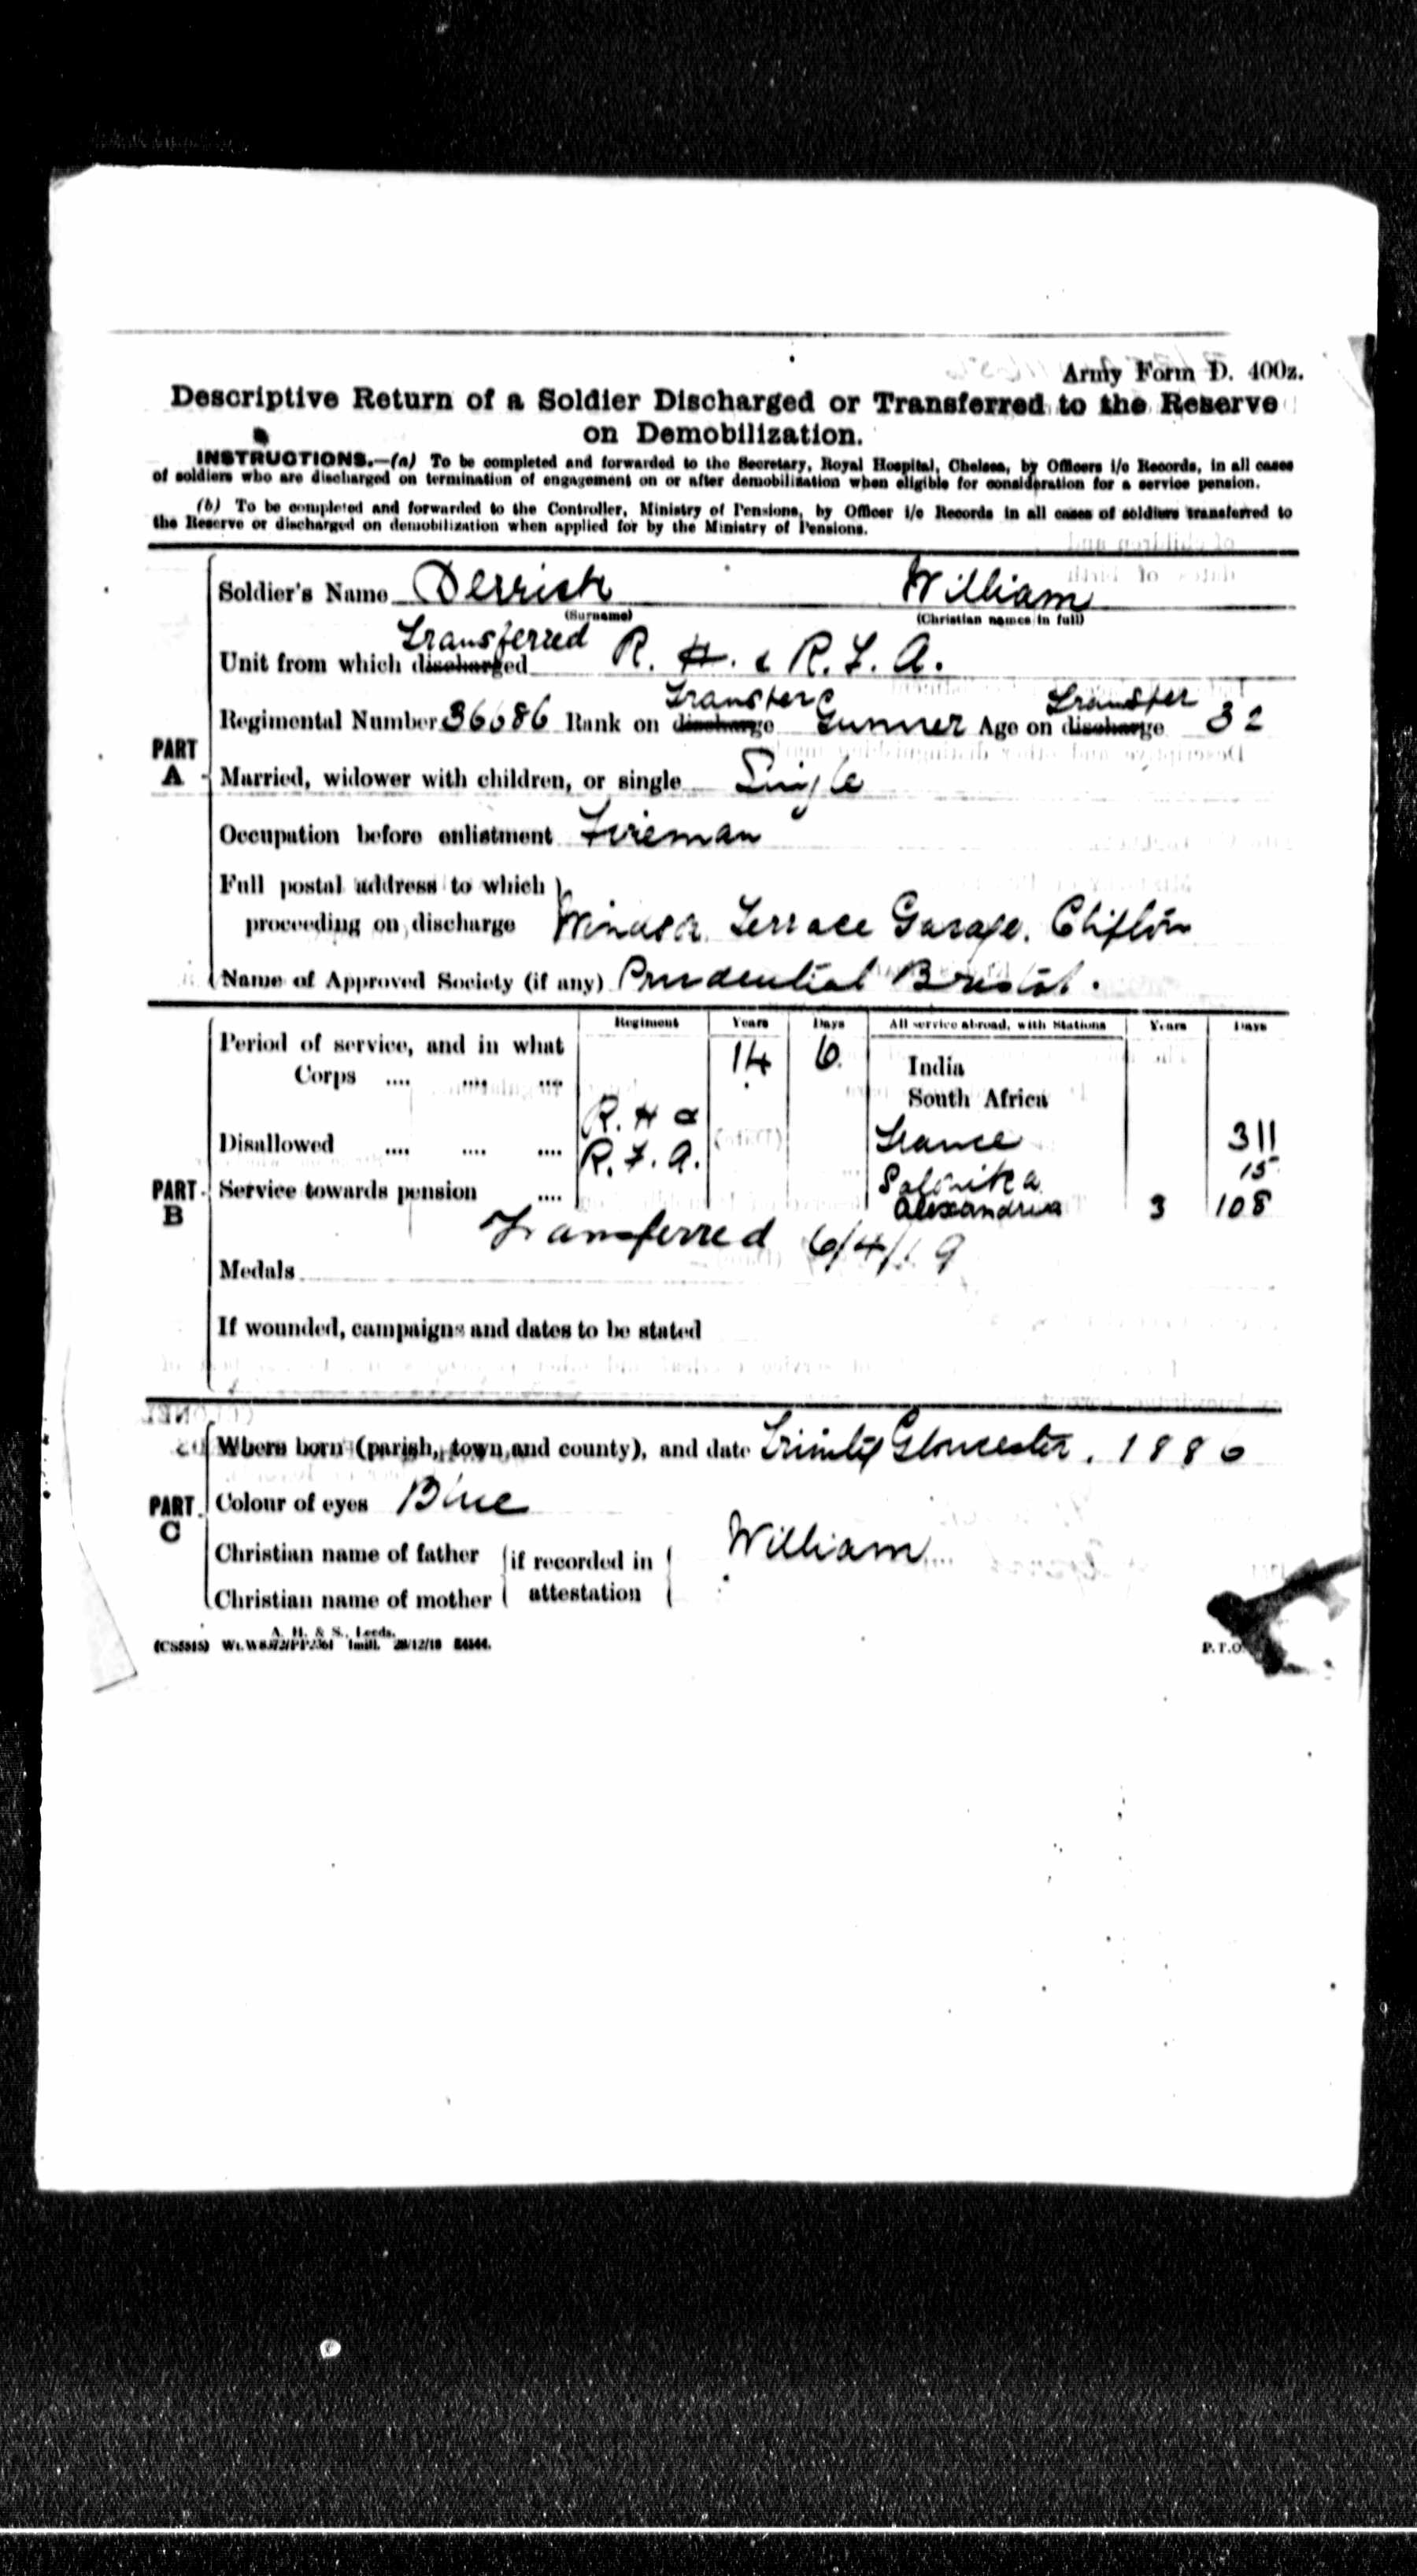 Army Form D. 400z.
Descriptive Return of a Soldier Discharged or Transferred to the Reserve
on Demobilization.
INSTRUCTIONS.—(a) To be completed and forwarded to the Secretary, Royal Hospital, Chelsea, by Officers i/c Records, in all cases
of soldiers who are discharged on termination of engagement on or after demobilisation when eligible for consideration for a service pension.
(b) To be completed and forwarded to the Controller, Ministry of Pensions, by Officer i/c Records in all cases of soldiers transferred to
the Reserve or discharged on demobilization when applied for by the Ministry of Pensions.
PART A
Soldier's Name Derrick William
(Surname) (Christian names in full)
Transferred
Unit from which discharged R. H. & R. F. A.
Transfer Transfer
Regimental Number 36686 Rank on discharge Gunner Age on discharge 32
Married, widower with children, or single Single
Occupation before enlistment Fireman
Full postal address to which
proceeding on discharge Windsor Terrace Garage. Clifton
Name of Approved Society (if any) Prudential Bristol.
PART B
Regiment Years Days All service abroad, with Stations Years Days
Period of service, and in what 14 6 India
Corps .... .... .... South Africa
R. H &
Disallowed .... .... .... R. F. A. France 311
Salonika 15
Service towards pension .... Alexandria 3 108
Transferred 6/4/19
Medals
If wounded, campaigns and dates to be stated
PART C
Where born (parish, town and county), and date Trinity Gloucester. 1886
Colour of eyes Blue
Christian name of father if recorded in William
Christian name of mother attestation
A. H. & S., Leeds.
(CS5515) 1mill. 20/12/18
P.T.O.